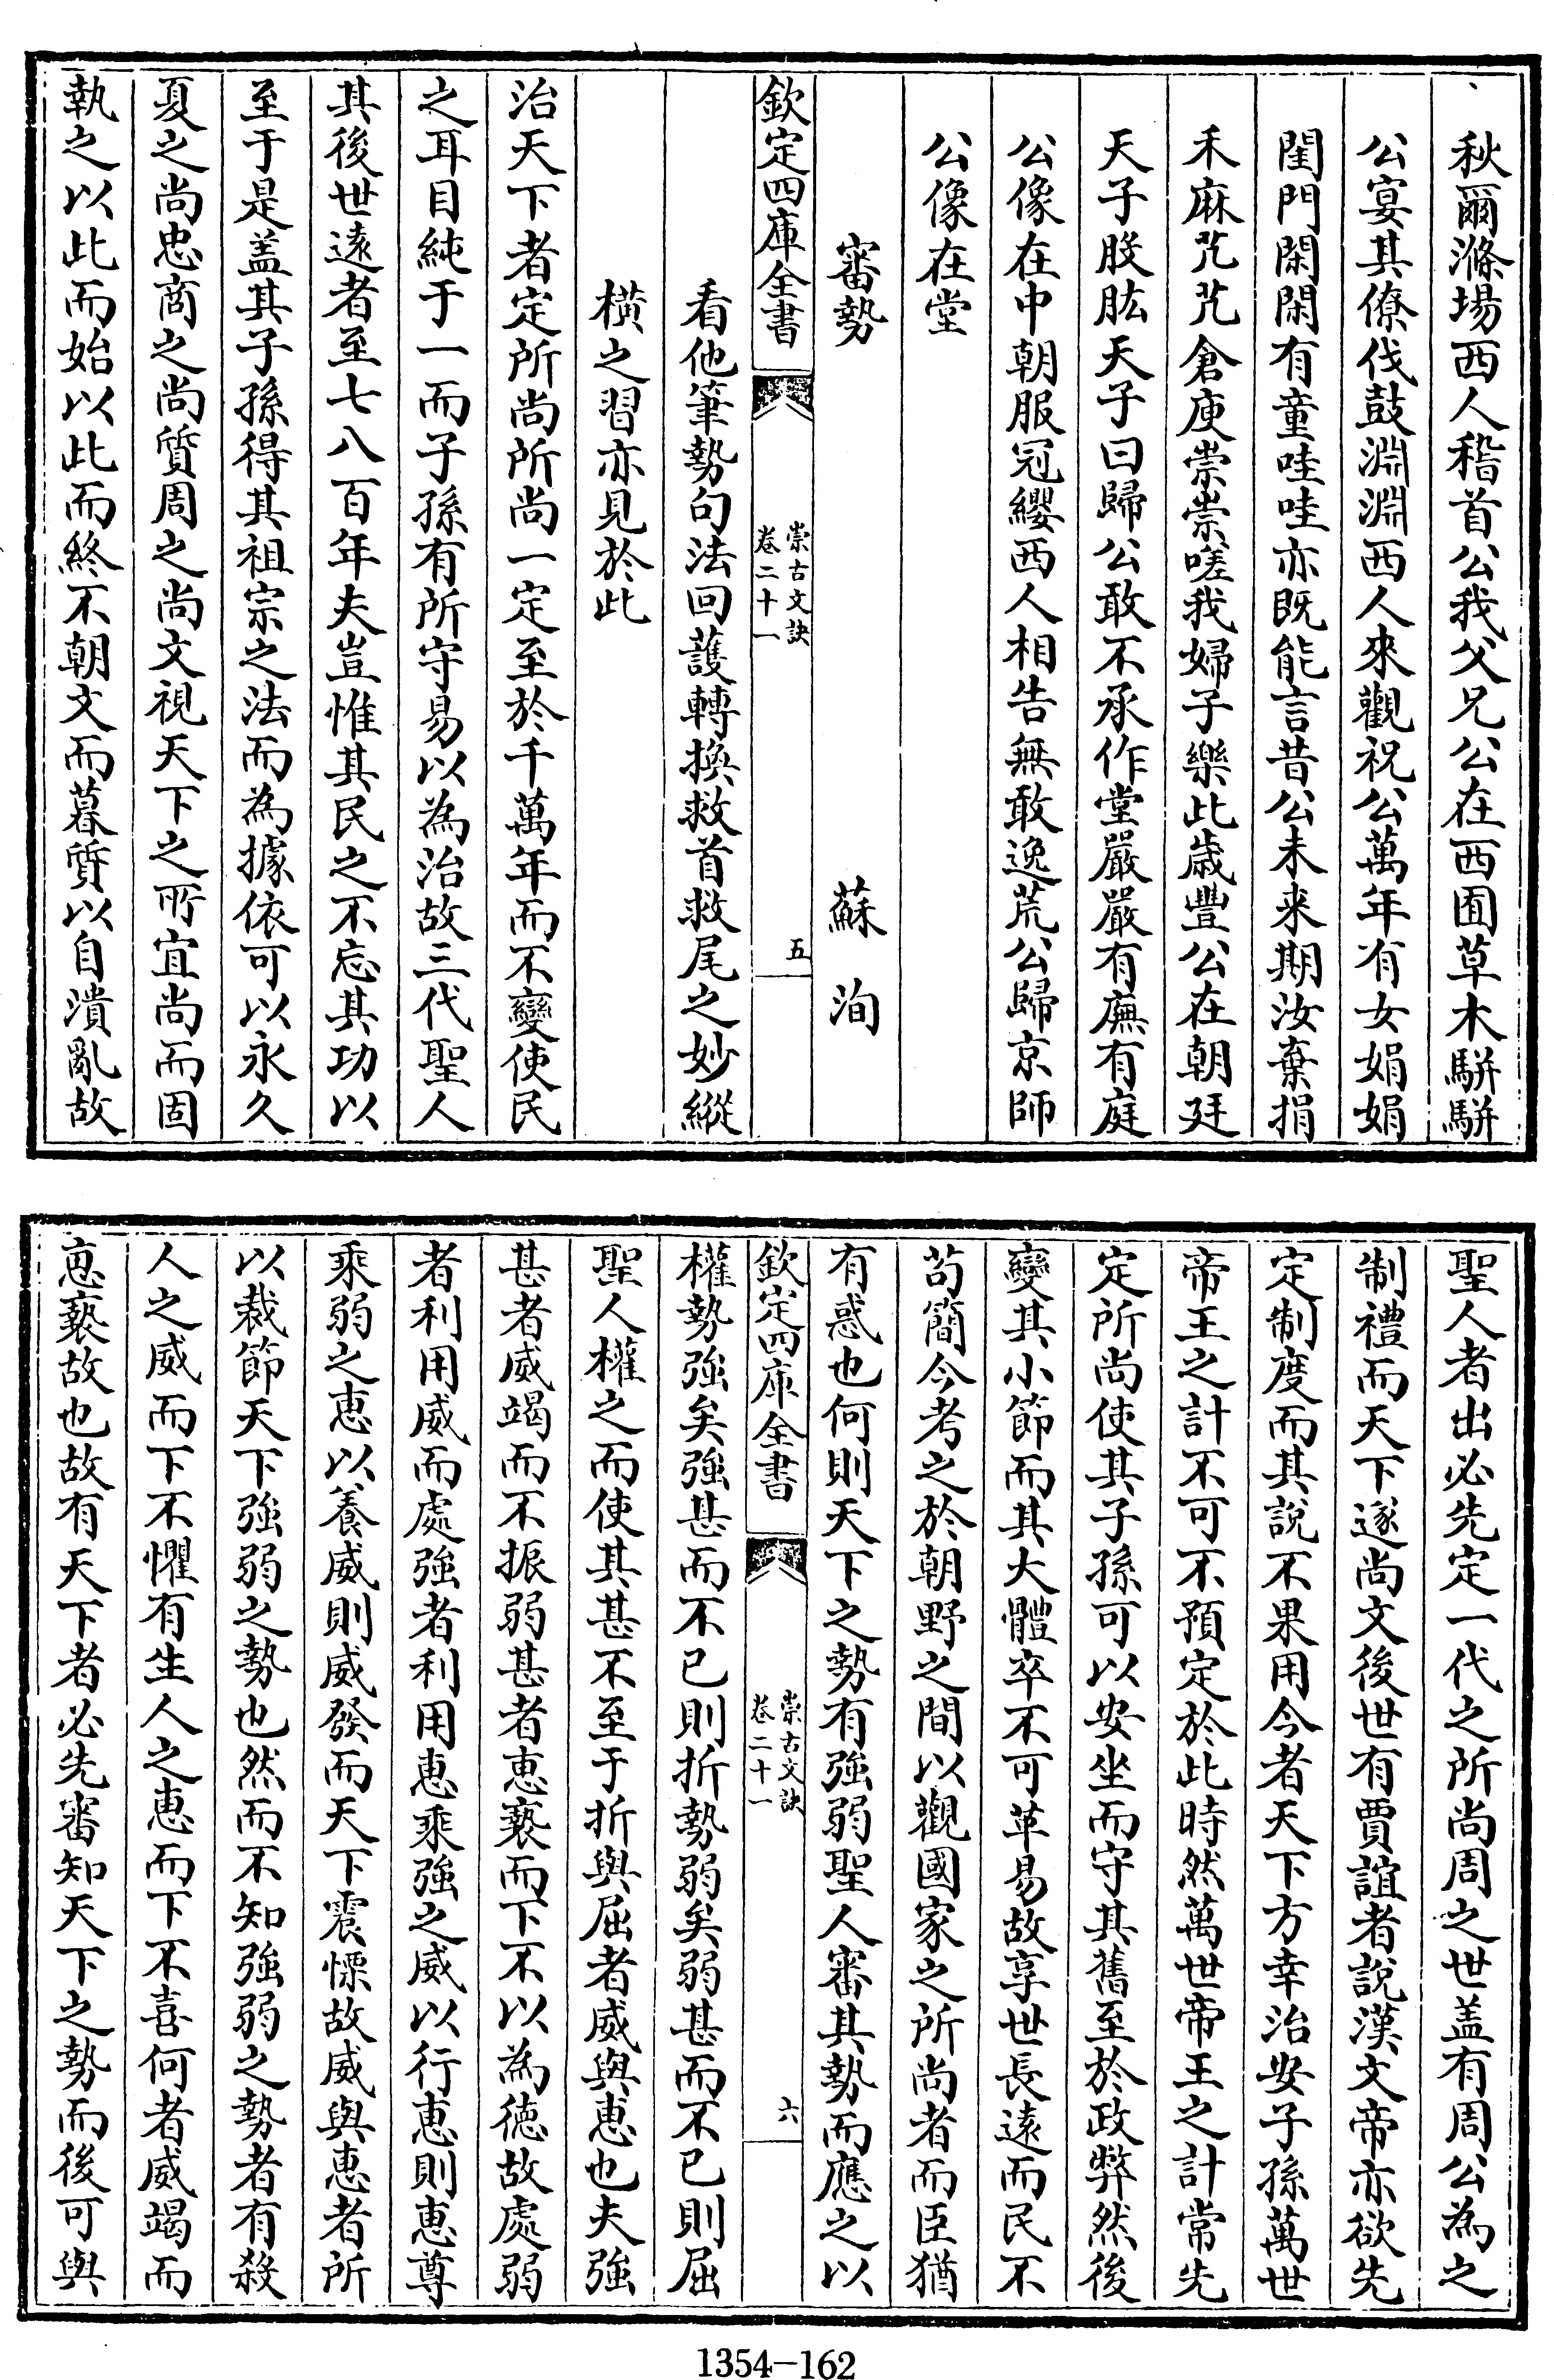 秋爾滌場西人稽首公我父兄公在西囿草木駢駢
公宴其僚伐鼓淵淵西人來觀祝公萬年有女娟娟
閨門閑閑有童哇哇亦既能言昔公未来期汝棄捐
禾麻芃芃倉庾崇崇嗟我婦子樂此歲豐公在朝廷
天子股肱天子曰歸公敢不承作堂嚴嚴有廡有庭
公像在中朝服冠纓西人相告無敢逸荒公歸京師
公像在堂
審勢 蘇洵
欽定四庫全書 崇古文訣 卷二十一 五
看他筆勢句法回護轉換救首救尾之妙縱
橫之習亦見於此
治天下者定所尚所尚一定至於千萬年而不變使民
之耳目純于一而子孫有所守易以為治故三代聖人
其後世遠者至七八百年夫豈惟其民之不忘其功以
至于是盖其子孫得其祖宗之法而為據依可以永久
夏之尚忠商之尚質周之尚文視天下之所宜尚而固
執之以此而始以此而終不朝文而暮質以自潰亂故
聖人者出必先定一代之所尚周之世盖有周公為之
制禮而天下遂尚文後世有賈誼者說漢文帝亦欲先
定制度而其說不果用今者天下方幸治安子孫萬世
帝王之計不可不預定於此時然萬世帝王之計常先
定所尚使其子孫可以安坐而守其舊至於政弊然後
變其小節而其大體卒不可革易故享世長遠而民不
苟簡今考之於朝野之間以觀國家之所尚者而臣猶
有惑也何則天下之勢有強弱聖人審其勢而應之以
欽定四庫全書 崇古文訣 卷二十一 六
權勢強矣強甚而不已則折勢弱矣弱甚而不已則屈
聖人權之而使其甚不至于折與屈者威與恵也夫強
甚者威竭而不振弱甚者恵褻而下不以為徳故處弱
者利用威而處強者利用恵乘強之威以行恵則恵尊
乘弱之恵以養威則威發而天下震慄故威與恵者所
以裁節天下強弱之勢也然而不知強弱之勢者有殺
人之威而下不懼有生人之恵而下不喜何者威竭而
恵褻故也故有天下者必先審知天下之勢而後可與
1354-162